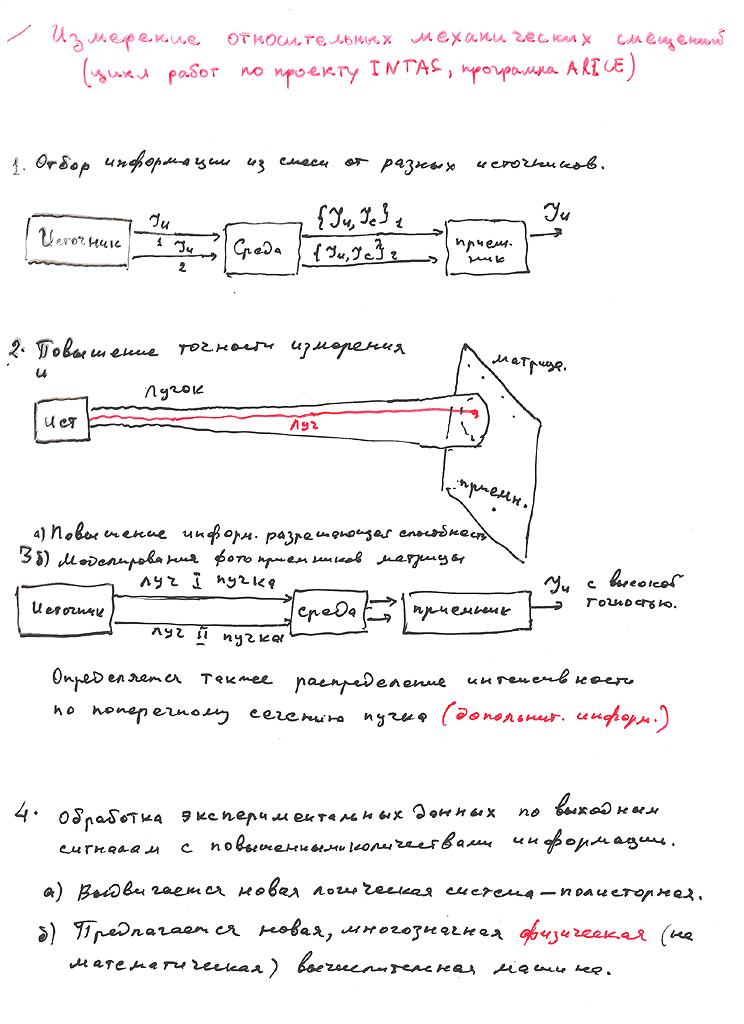 Измерение относительных механических смещений
(цикл работ по проекту INTAS, программа ARICE)
1. Отбор информации из смеси от разных источников.
Источник
Jи
1
Jи
2
Среда
{Jи, Jс}1
{Jи, Jс}2
приемник
Jи
2. Повышение точности измерения
и
Ист
пучок
луч
матрица.
приемн.
а) Повышение информ. разрешающей способности
3 б) Моделирования фотоприемников матрицы
Источник
луч I пучка
луч II пучка
среда
приемник
Jи с высокой
точностью.
Определяется также распределение интенсивности
по поперечному сечению пучка (дополнит. информ.)
4. Обработка экспериментальных данных по выходным
сигналам с повышенными количествами информации.
а) Выдвигается новая логическая система – полисторная.
б) Предлагается новая, многозначная физическая (не
математическая) вычислительная машина.